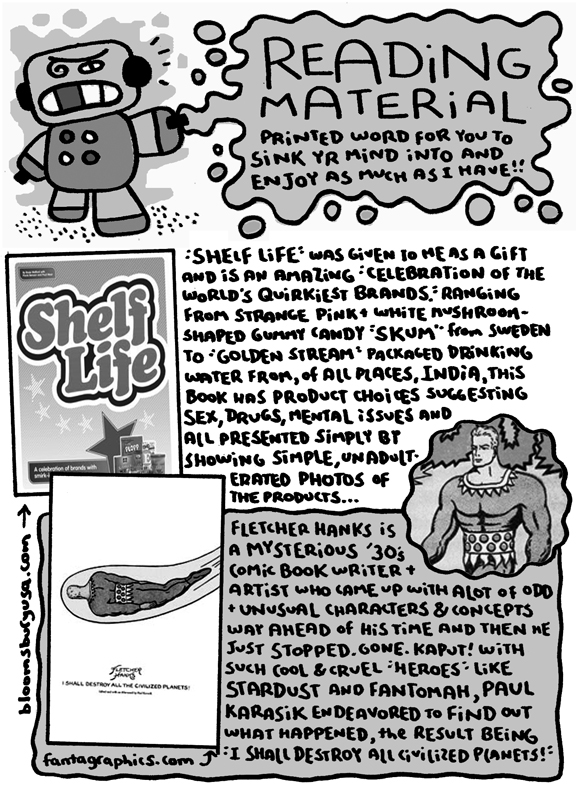 READING
MATERIAL
PRINTED WORD FOR YOU TO
SINK YR MIND INTO AND
ENJOY AS MUCH AS I HAVE!!
"SHELF LIFE" WAS GIVEN TO ME AS A GIFT
AND IS AN AMAZING "CELEBRATION OF THE
WORLD'S QUIRKIEST BRANDS." RANGING
FROM STRANGE PINK + WHITE MUSHROOM-
SHAPED GUMMY CANDY "SKUM" from SWEDEN
TO "GOLDEN STREAM" PACKAGED DRINKING
WATER FROM, of ALL PLACES, INDIA, THIS
BOOK HAS PRODUCT CHOICES SUGGESTING
SEX, DRUGS, MENTAL ISSUES AND
ALL PRESENTED SIMPLY BY
SHOWING SIMPLE, UNADULT-
ERATED PHOTOS OF
THE PRODUCTS...
Shelf
Life
A celebration of brands with
bloomsburyusa.com
FLETCHER HANKS IS
A MYSTERIOUS '30s
COMIC BOOK WRITER +
ARTIST WHO CAME UP WITH ALOT OF ODD
+ UNUSUAL CHARACTERS & CONCEPTS
WAY AHEAD OF HIS TIME AND THEN HE
JUST STOPPED. GONE. KAPUT! WITH
SUCH COOL & CRUEL "HEROES" LIKE
STARDUST AND FANTOMAH, PAUL
KARASIK ENDEAVORED TO FIND OUT
WHAT HAPPENED, the RESULT BEING
"I SHALL DESTROY ALL CIVILIZED PLANETS!"
FLETCHER
HANKS
I SHALL DESTROY ALL THE CIVILIZED PLANETS!
fantagraphics.com